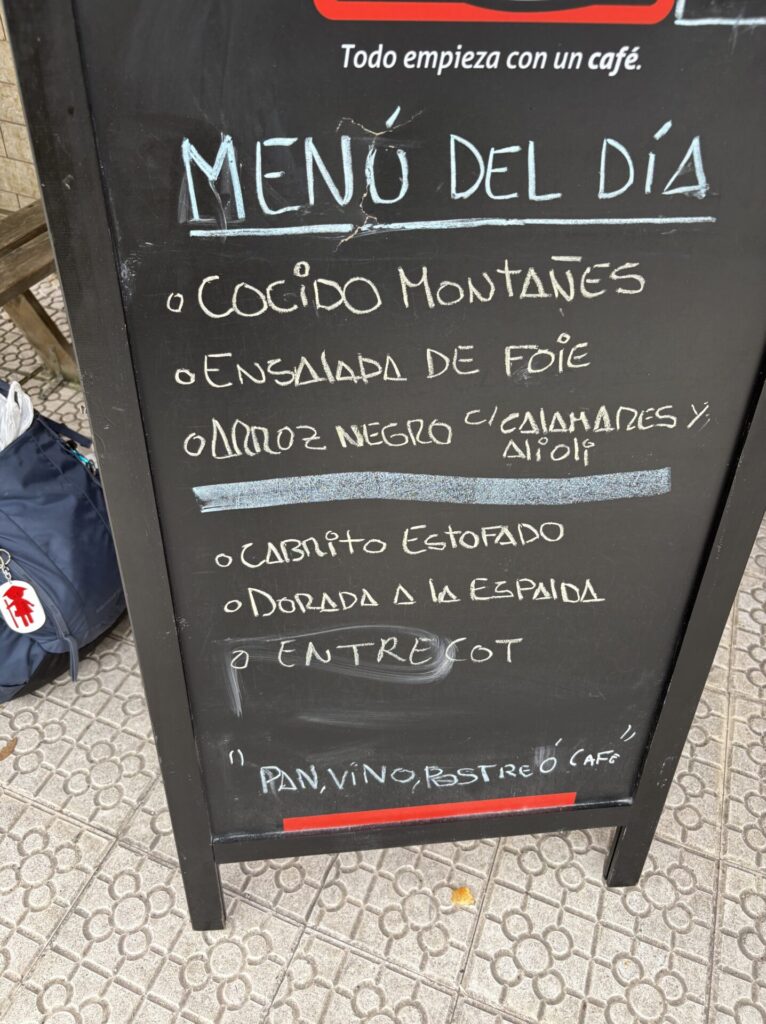 Todo empieza con un café.
MENÚ DEL DÍA
o COCIDO MONTAÑES
o ENSALADA DE FOIE
o ARROZ NEGRO c/ CALAMARES Y
ALIOLI
o CABRITO ESTOFADO
o DORADA A LA ESPALDA
o ENTRECOT
"PAN, VINO, POSTRE Ó CAFÉ"